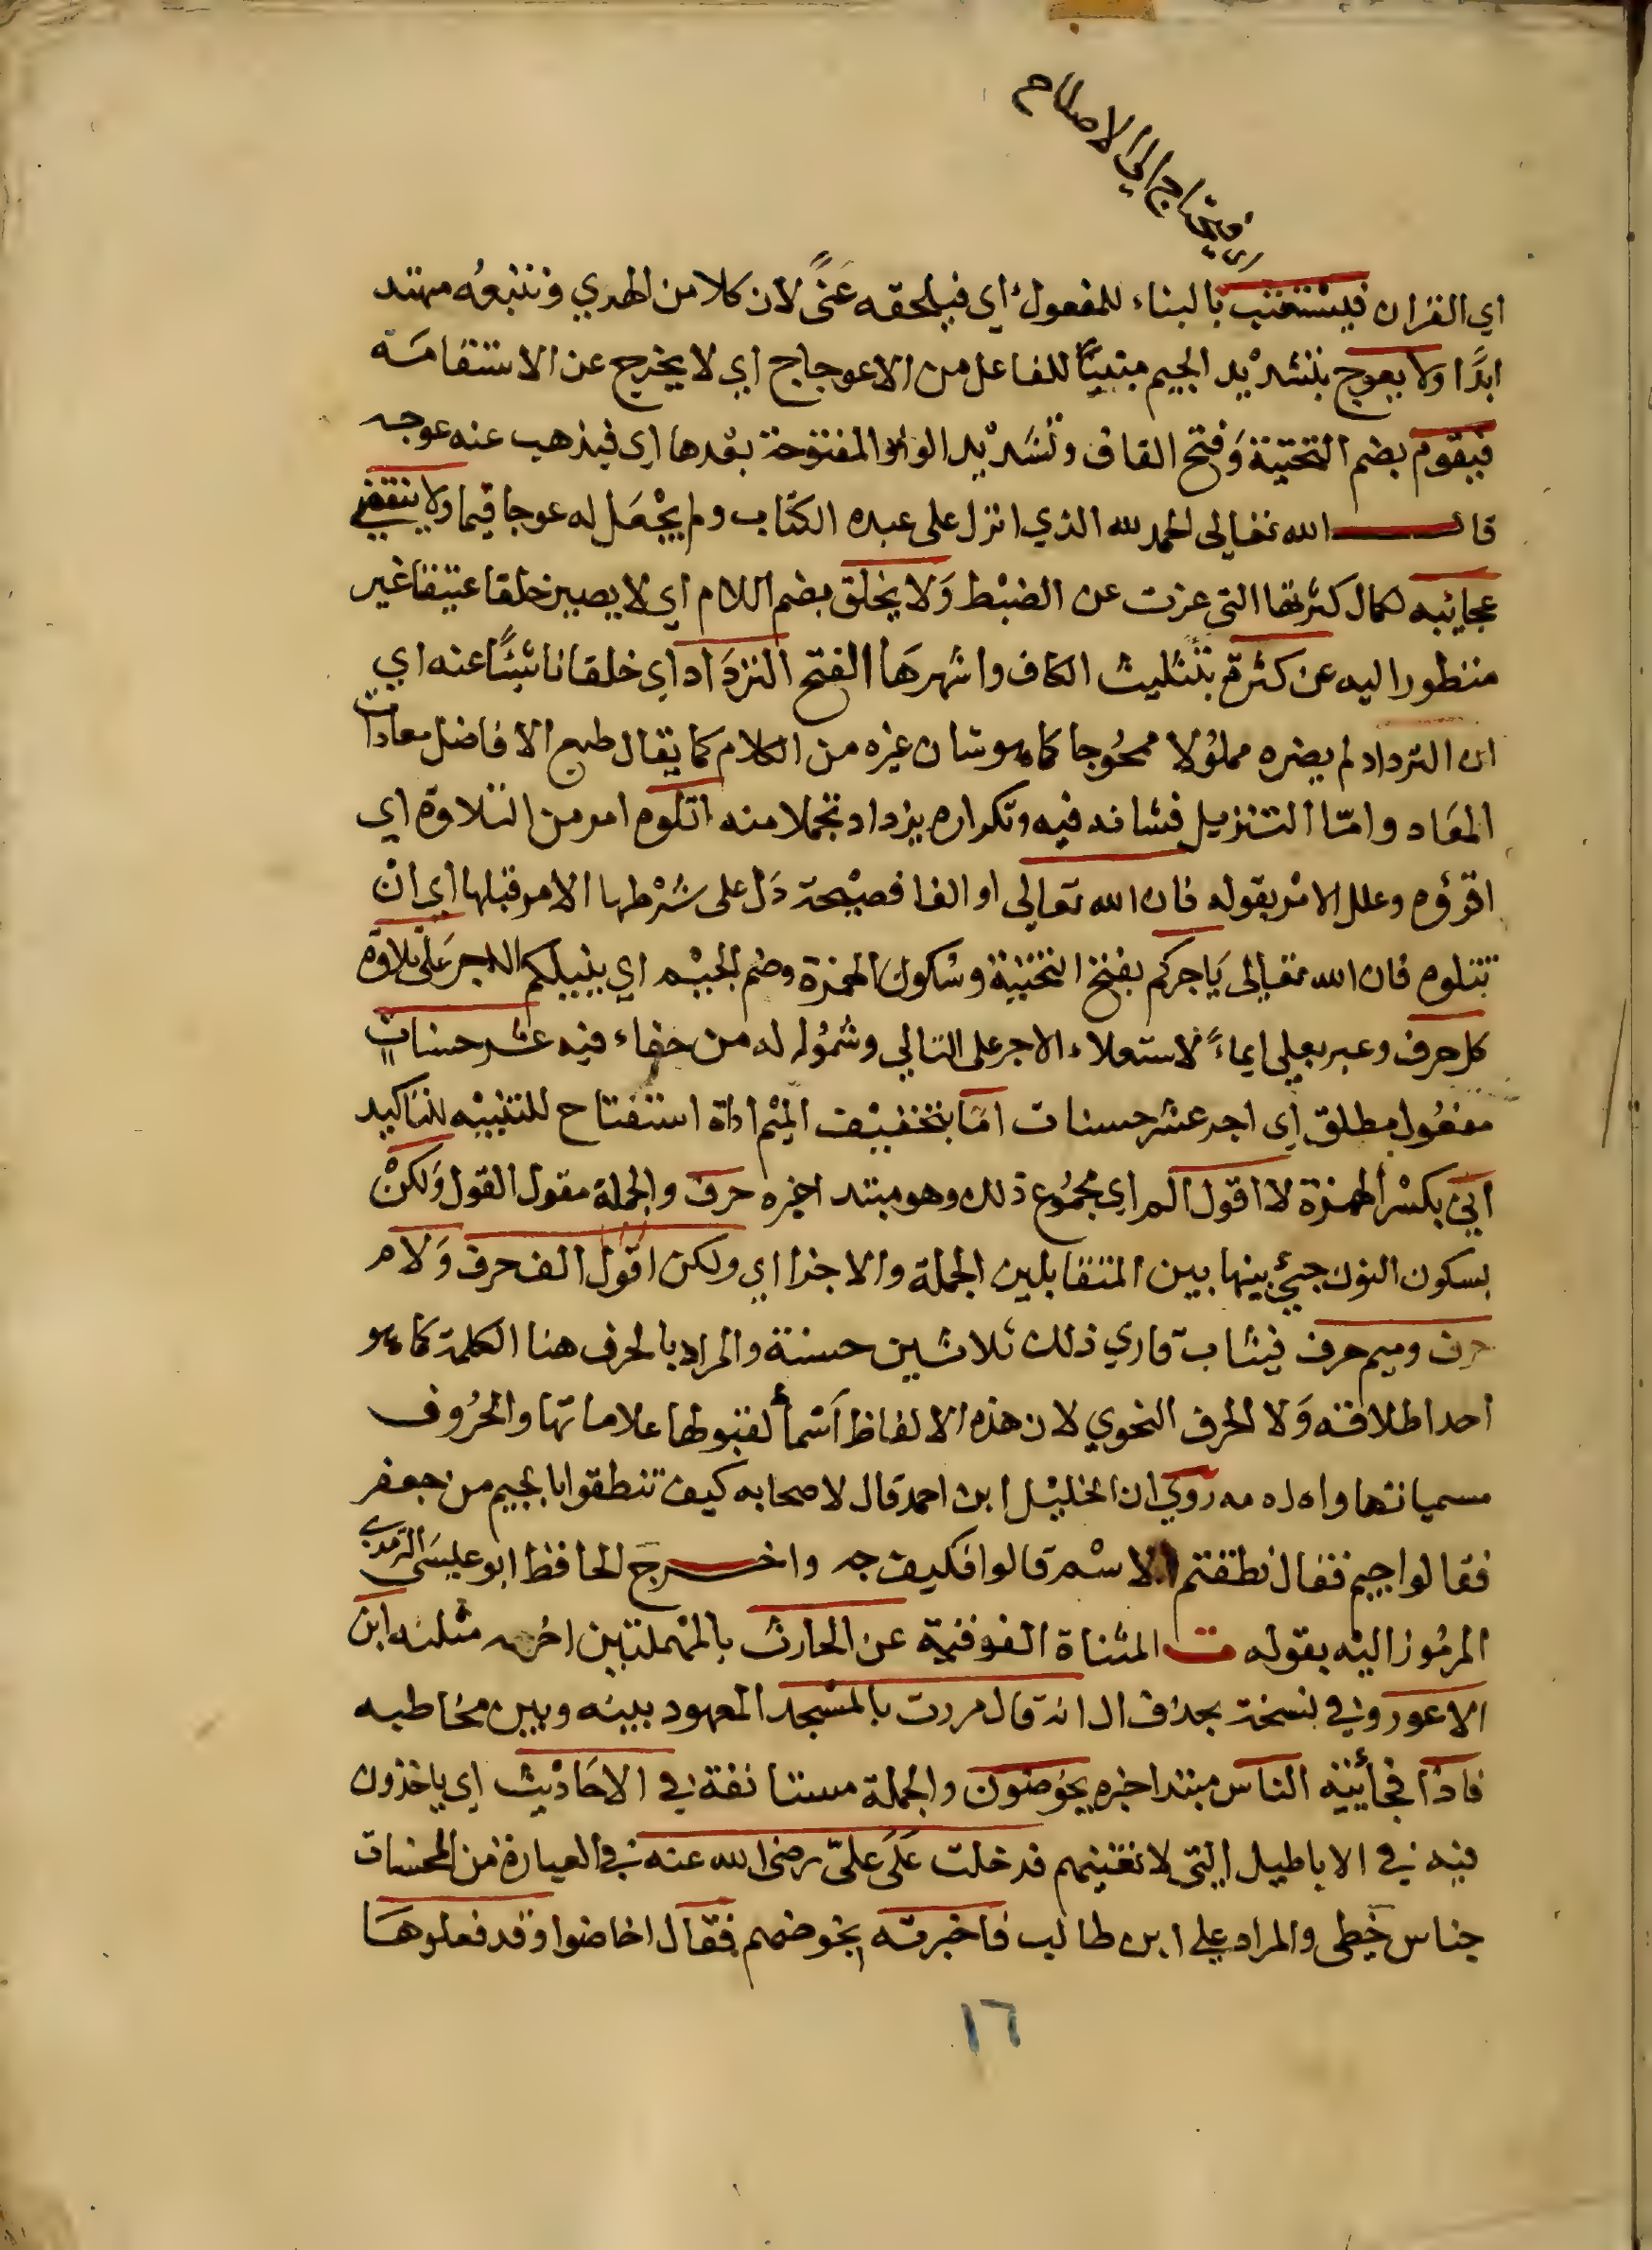 فيحتاج الي الاصلاح
اي القران فيستعتب بالبناء للمفعول اي فيلحقه عتبى لان كلا من الهدي وتتبعه مهتد
ابدًا ولا يعوج بتشديد الجيم مبنيًا للفاعل من الاعوجاج اي لا يخرج عن الاستقامة
فيقوم بضم التحتية وفتح القاف وتشديد الواو المفتوحة بعدها اي فيذهب عنه عوجه
قال الله تعالى الحمد لله الذي انزل على عبده الكتاب ولم يجعل له عوجا قيما ولا ينقضي
عجايبه لكمال كثرتها التي عزت عن الضبط ولا يخلق بضم اللام اي لا يصير خلقا عتيقا غير
منظورا اليه عن كثرة بتثليث الكاف واشهرها الفتح الترداد اي خلقا ناشئًا عنه اي
ان الترداد لم يصره مملولا ممجوجا كما هو شان غيره من الكلام كما يقال طبع الافاضل معادات
المعاد وامّا التنزيل فشانه فيه وتكراره يزداد تجملا منه اتلوه امر من التلاوة اي
اقرؤه وعلل الامر بقوله فان الله تعالي او الفا فصيحة دل على شرطها الامر قبلها اي ان
تتلوه فان الله تعالى ياجركم بفتح التحتية وسكون الهمزة وضم الجيم اي يثيبكم الاجر على تلاوة
كل حرف وعبر بعلى ايماءً لاستعلاء الاجر على التالي وشموله له من خفاء فيه عشر حسنات
مفعول مطلق اي اجر عشر حسنات اما بتخفيف الميم اداة استفتاح للتنبيه للتاكيد
اني بكسر الهمزة لا اقول الم اي مجموع ذلك وهو مبتدا خبره حرف والجملة مقول القول ولكن
بسكون النون جيئ بينها بين المتقابلين الجملة والاجزا اي ولكن اقول الف حرف ولام
حرف وميم حرف فيثاب قاري ذلك ثلاثين حسنة والمراد بالحرف هنا الكلمة كما هو
احد اطلاقته ولا الحرف النحوي لان هذه الالفاظ اسمأ لقبولها علاماتها والحروف
مسمياتها واه له مه روي ان الخليل ابن احمد قال لاصحابه كيف تنطقوا بالجيم من جعفر
فقالوا جيم فقال نطقتم الاسم قالوا فكيف جه واخرج الحافظ ابو عيسى الترمذي
المرموز اليه بقوله ت المثناة الفوقية عن الحارث بالمهملتين اخره مثلثه ابن
الاعور وفي نسخة بحذف ال انه قال مررت بالمسجد المعهود بينه وبين مخاطبه
فاذا فجأئية الناس مبتدا خبره يخوضون والجملة مستانفة في الاحاديث اي ياخذون
فيه في الاباطيل التي لا تعنيهم فدخلت على عليّ رضى الله عنه في العبارة من المحسنات
جناس خطي والمراد علي ابن طالب فاخبرته بخوضهم فقال اخاضوا وقد فعلوها
١٦